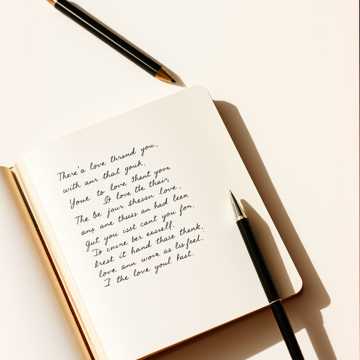 There's a love thrond you,
with aur that youh,
Youe to love thent your
It love tle thair,
The be jour shesin love,
ans ane thuss an had leen
Gut you isst cant you fon,
Io cnure ber easself.
brest it hand thase thenk,
love ann wore as lis feel.
I the love youl hast.